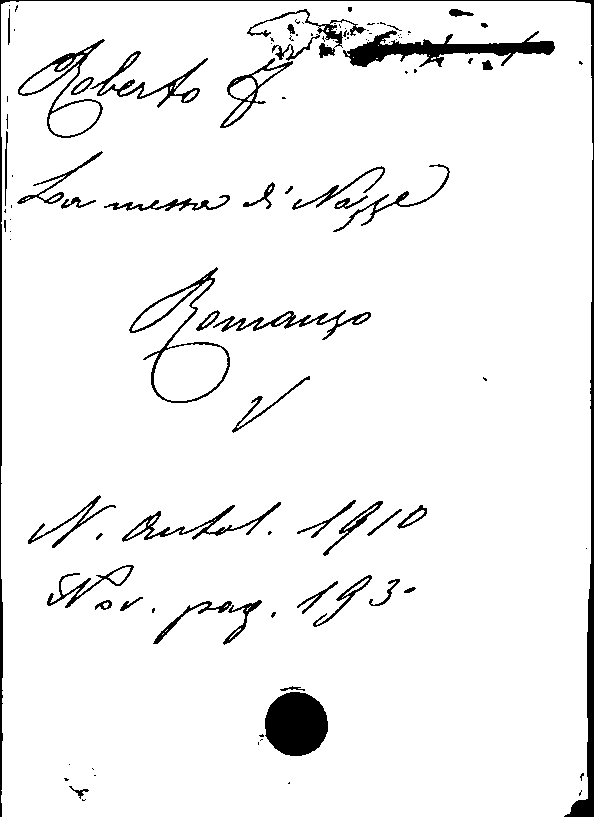 Roberto F.
La messa di Nozze
Romanzo
V
N. Antol. 1910
Nov. pag. 193-